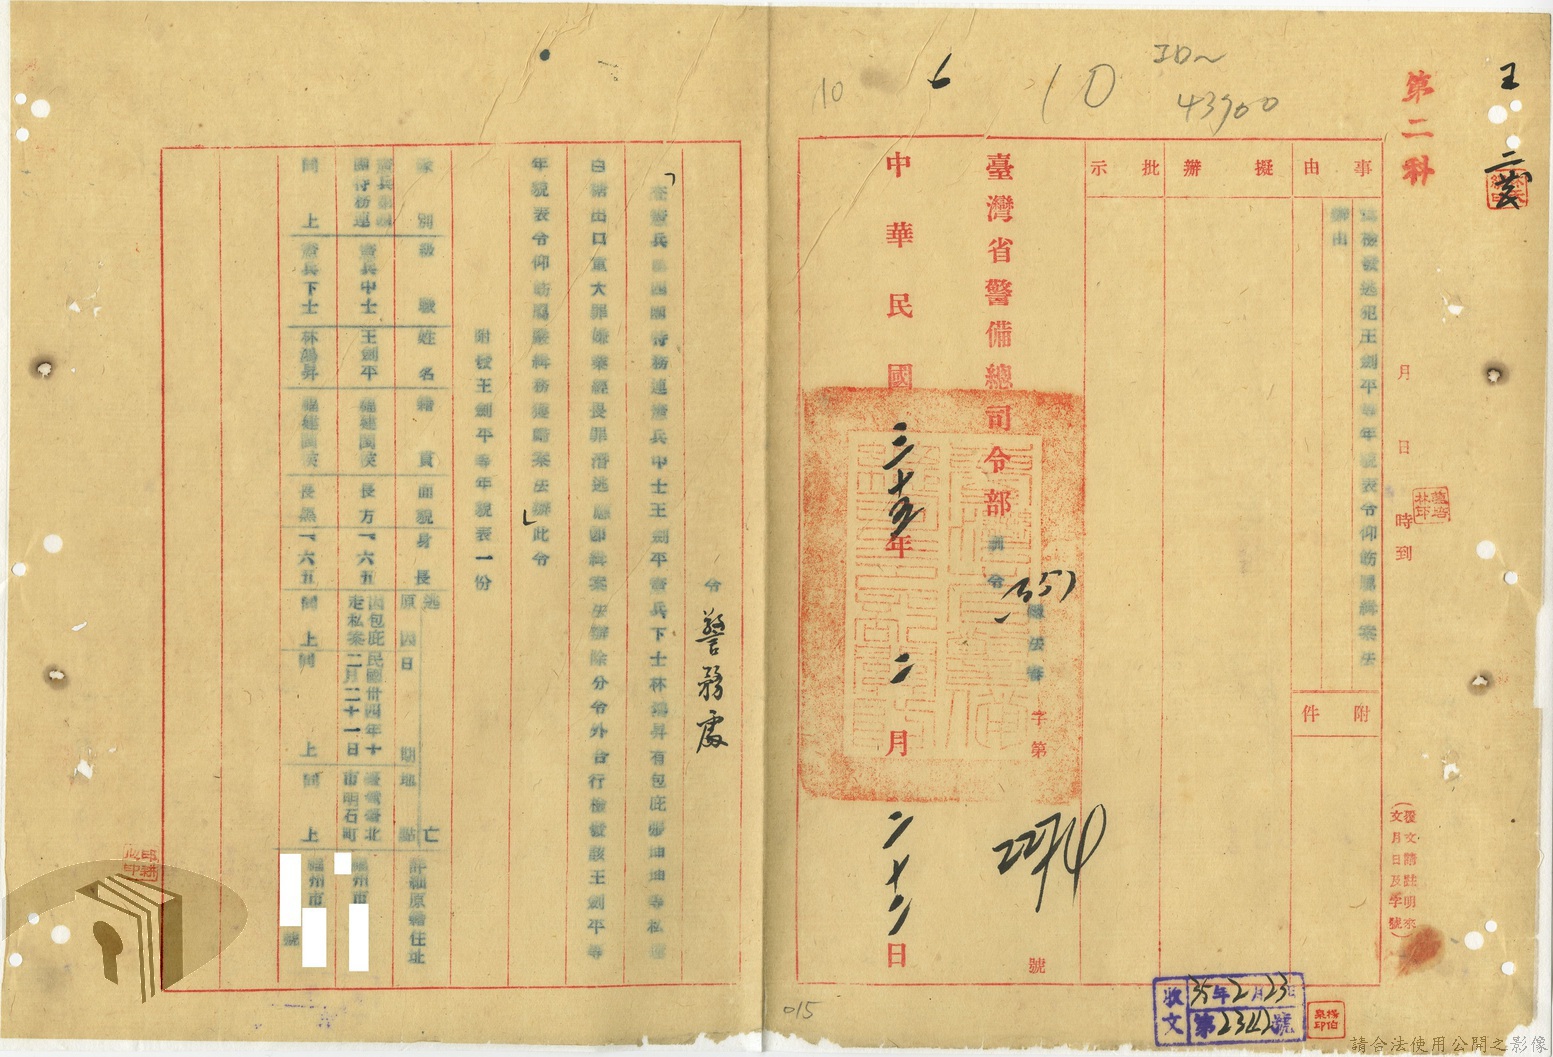 10
6
10
ID~
43900
王
第二科
月 日 時到
(覆文請註明來文月日及字號)
事由
檢發逃犯王劍平等年貌表令仰飭屬緝案法辦由
附件
擬辦
批示
臺灣省警備總司令部
訓令
法審
字第
號
中華民國三十五年二月二十二日
令 警務處
「查憲兵第四團特務連憲兵中士王劍平憲兵下士林鴻昇有包庇 坤坤等私運
白糖出口重大罪嫌業經畏罪潛逃應即緝案法辦除分令外合行檢發該王劍平等
年貌表令仰飭屬嚴緝務獲歸案法辦」此令
附發王劍平等年貌表一份
隊別 級職 姓名 籍貫 面貌 身長 逃亡 原因 日期 地點 詳細原籍住址
憲兵第四團特務連 憲兵中士 王劍平 福建閩侯 長方 一、六五 因包庇走私案 民國卅四年十二月二十一日 臺灣臺北市明石町 福州市
同上 憲兵下士 林鴻昇 福建閩侯 長黑 一、六五 同上 同上 同上 福州市 號
收文 35年2月23日
第2342號
楊伯泉印
015
請合法使用公開之影像